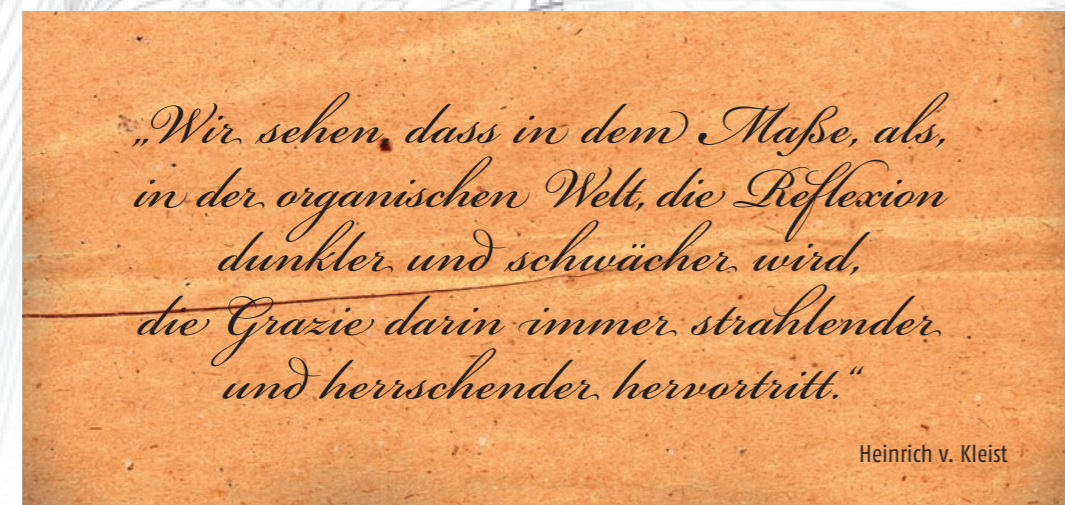 „Wir sehen, dass in dem Maße, als,
in der organischen Welt, die Reflexion
dunkler und schwächer wird,
die Grazie darin immer strahlender
und herrschender hervortritt.“
Heinrich v. Kleist